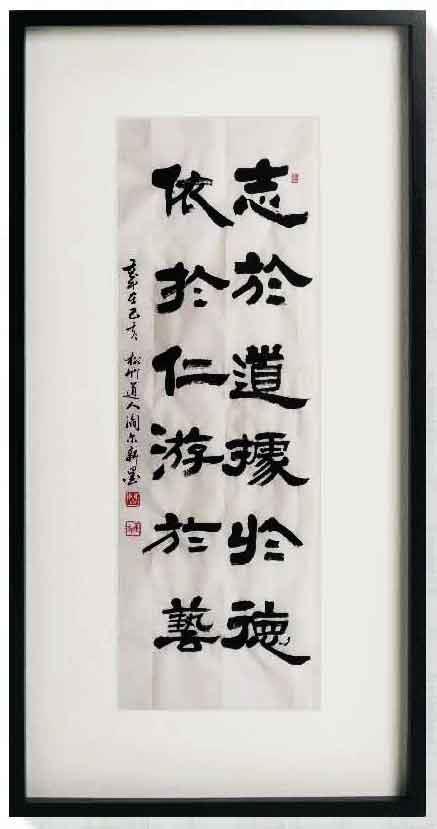 志於道據於德
依於仁游於藝
歲在己亥 松竹道人閻尔新書